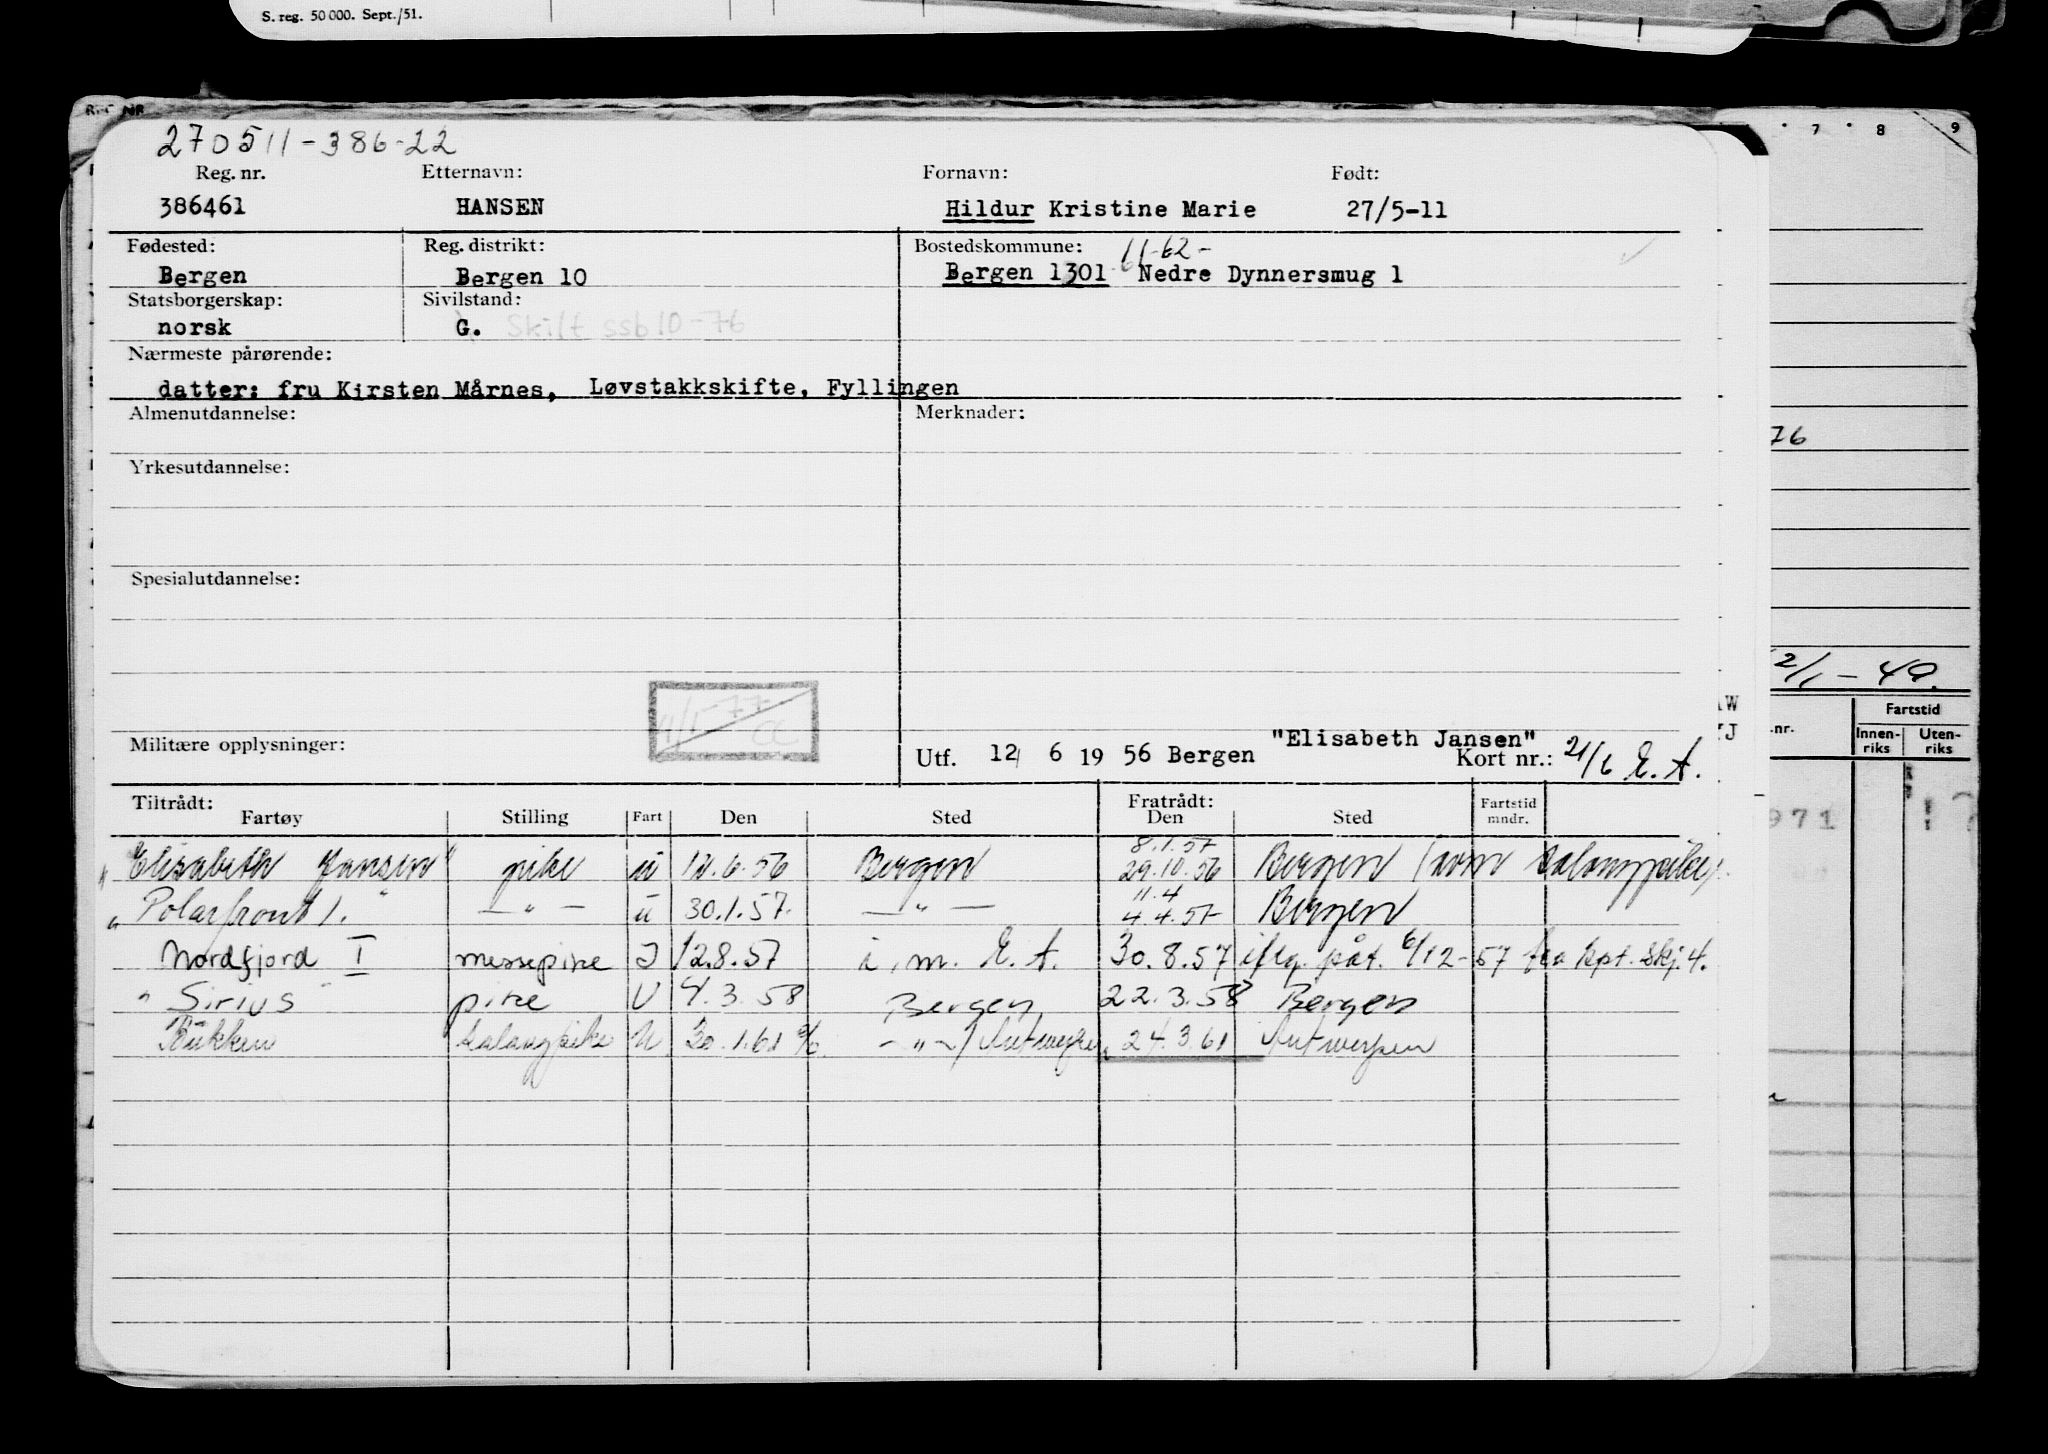 S. reg. 50 000. Sept./51.
7 8 9
270511-386-22
Reg. nr. Etternavn: Fornavn: Født:
386461 HANSEN Hildur Kristine Marie 27/5-11
Fødested: Reg. distrikt: Bostedskommune: 11-62-
Bergen Bergen 10 Bergen 1301 Nedre Dynnersmug 1
Statsborgerskap: Sivilstand:
norsk G. Skilt ssb 10-76
Nærmeste pårørende:
datter: fru Kirsten Mårnes, Løvstakkskifte, Fyllingen
Almenutdannelse: Merknader:
76
Yrkesutdannelse:
Spesialutdannelse:
2/1-49.
11/1-77
Militære opplysninger:
"Elisabeth Jansen"
Utf. 12/ 6 19 56 Bergen Kort nr.: 21/6 E. A.
nr. Fartstid
Innen-riks Uten-riks
Tiltrådt: Fratrådt:
Fartøy Stilling Fart Den Sted Den Sted Fartstid mndr.
971
8.1.57
"Elisabeth Jansen" pike u 12.6.56 Bergen 29.10.56 Bergen (som salongpike).
11.4
"Polarfront I." —"— u 30.1.57. —"— 4.4.57 Bergen
Nordfjord I messepike I 12.8.57 i. m. E. A. 30.8.57 iflg. påt. 6/12-57 fra kpt. skj. 4.
"Sirius" pike U 4.3.58 Bergen 22.3.58 Bergen
salongpike U 30.1.61 —"—/Antwerpen 24.3.61 Antwerpen